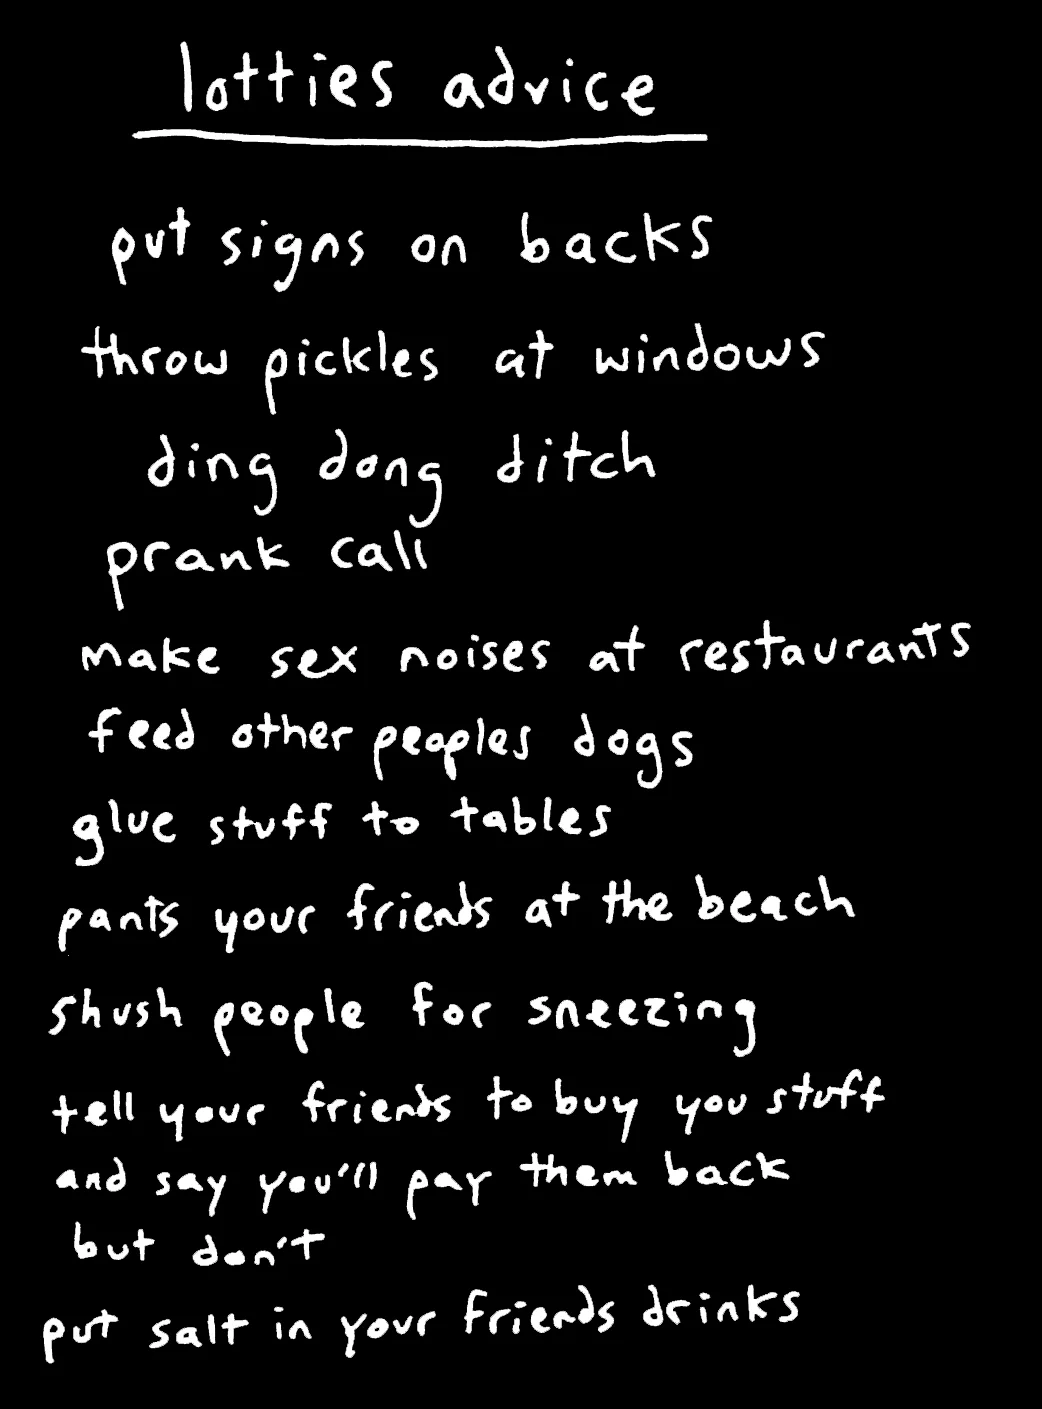 lotties advice
put signs on backs
throw pickles at windows
ding dong ditch
prank call
make sex noises at restaurants
feed other peoples dogs
glue stuff to tables
pants your friends at the beach
shush people for sneezing
tell your friends to buy you stuff
and say you'll pay them back
but don't
put salt in your friends drinks